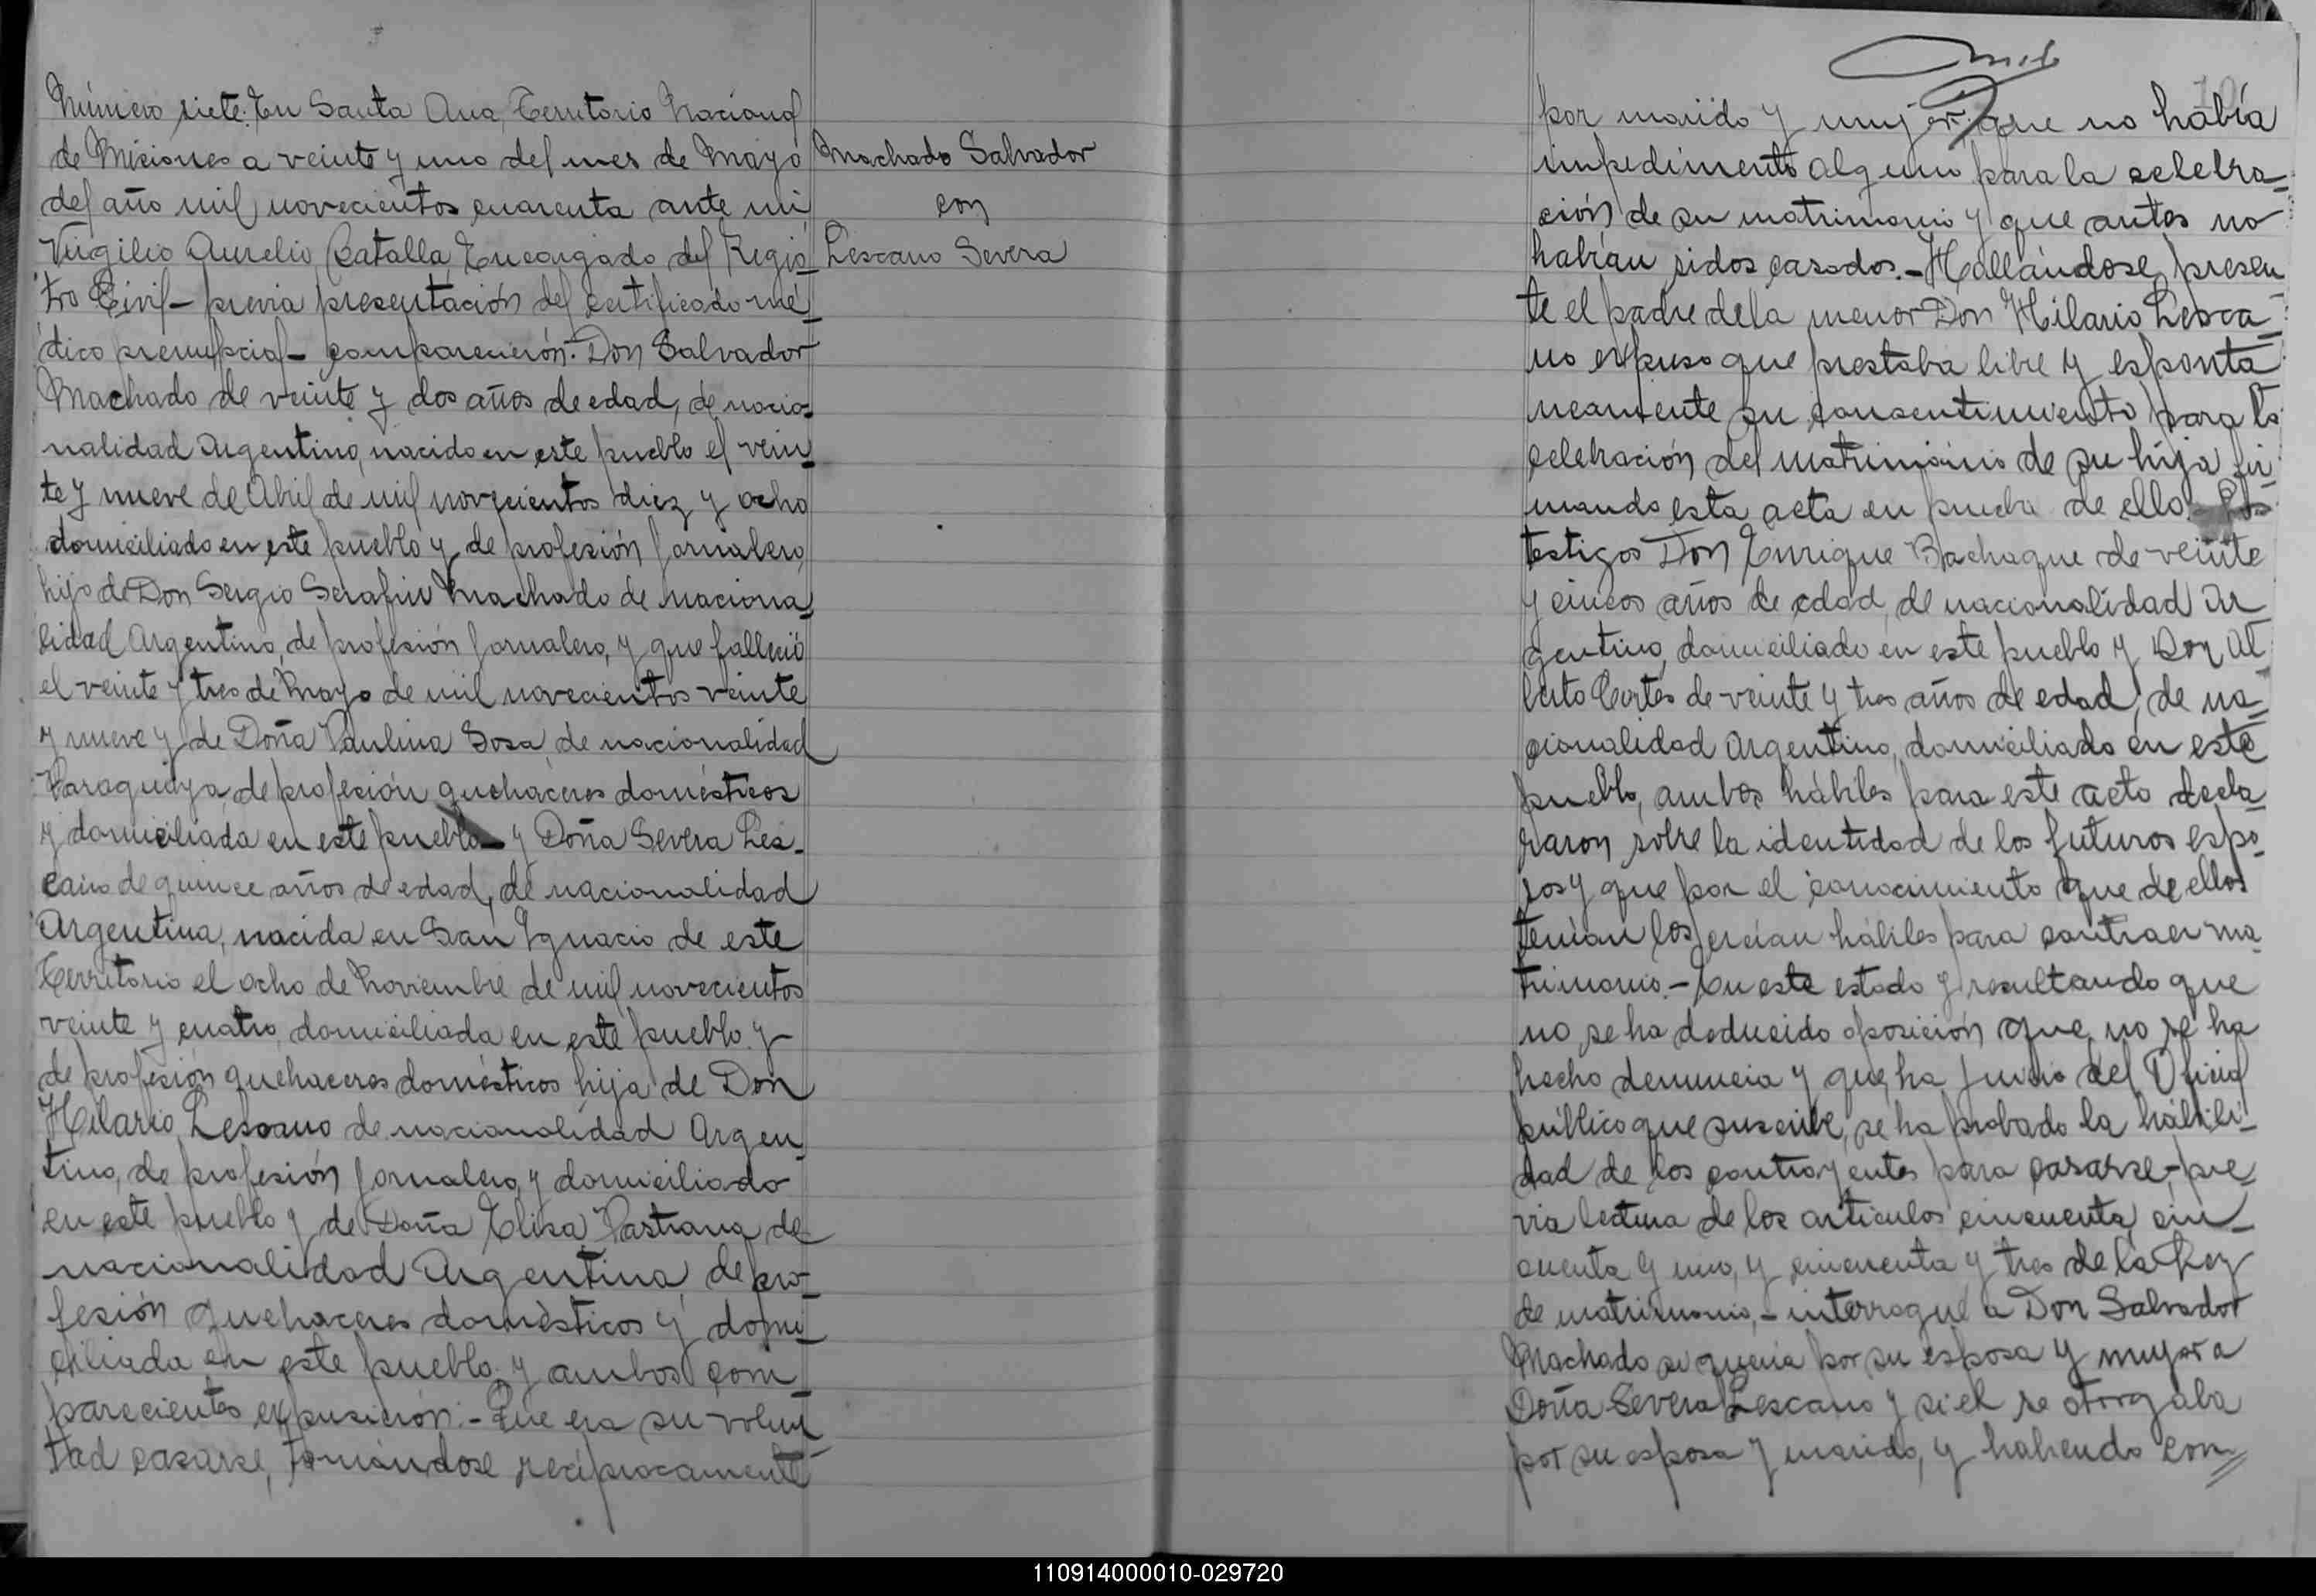 Número siete. En Santa Ana, Territorio Nacional
de Misiones a veinte y uno del mes de Mayo
del año mil novecientos cuarenta ante mi
Virgilio Aurelio Batalla Encargado del Regis_
tro Civil – previa presentación del certificado mé_
dico prenupcial – comparecierón: Don Salvador
Machado de veinte y dos años de edad, de nacio_
nalidad Argentino, nacido en este pueblo el vein_
te y nueve de Abril de mil novecientos diez y ocho
domiciliado en este pueblo y de profesión jornalero,
hijo de Don Sergio Serafin Machado de naciona_
lidad Argentino, de profesión jornalero, y que falleció
el veinte y tres de Mayo de mil novecientos veinte
y nueve y de Doña Paulina Sosa de nacionalidad
Paraguaya de profesión quehaceres domésticos
y domiciliada en este pueblo y Doña Severa Les_
cano de quince años de edad, de nacionalidad
Argentina, nacida en San Ignacio de este
Territorio el ocho de Noviembre de mil novecientos
veinte y cuatro, domiciliada en este pueblo y
de profesión quehaceres domésticos hija de Don
Hilario Lescano de nacionalidad Argen_
tino, de profesión jornalero y domiciliado
en este pueblo y de Doña Elisa Pastrana de
nacionalidad Argentina, de pro_
fesión quehaceres domésticos y domi_
ciliada en este pueblo y ambos com_
parecientes expusieron: – Que era su volun_
tad casarse, tomándose reciprocamente
Machado Salvador
con
Lescano Severa
10
por marido y mujer, que no había
impedimento alguno para la celebra_
ción de su matrimonio y que antes no
habían sidos casados. – Hallándose presen_
te el padre de la menor Don Hilario Lesca_
no expuso que prestaba libre y esponta_
neamente su consentimiento para la
celebración del matrimonio de su hija fir_
mando esta acta en prueba de ello. Los
testigos Don Enrique Bachaque de veinte
y cincos años de edad, de nacionalidad Ar_
gentino, domiciliado en este pueblo y Don Al_
berto Cortés de veinte y tres años de edad, de na_
cionalidad Argentino, domiciliado en este
pueblo, ambos hábiles para este acto decla_
raron sobre la identidad de los futuros espo_
sos y que por el conocimiento que de ellos
tenían los creían hábiles para contraer ma_
trimonio. – En este estado y resultando que
no se ha deducido oposición que no se ha
hecho denuncia y que, ha juicio del Oficial
público que suscribe, se ha probado la hábili_
dad de los contrayentes para casarse, – pre_
via lectura de los articulos cincuenta, cin_
cuenta y uno, y cincuenta y tres de la Ley
de matrimonio, – interrogué a Don Salvador
Machado si quería por su esposa y mujer a
Doña Severa Lescano y si el se otorgaba
por su esposa y marido, y habiendo con_
110914000010-029720